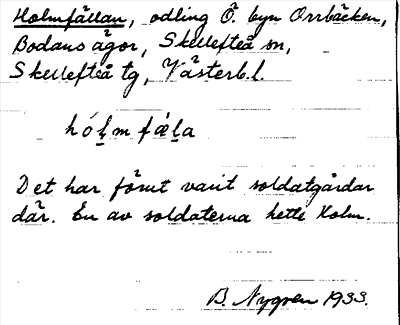 Holmfällan, odling Ö. byn Orrbäcken,
Bodans ägor, Skellefteå sn,
Skellefteå tg, Västerb.l.
hól̲m fál̲a
Det har förut varit soldatgårdar
där. En av soldaterna hette Holm.
B. Nygren 1933.